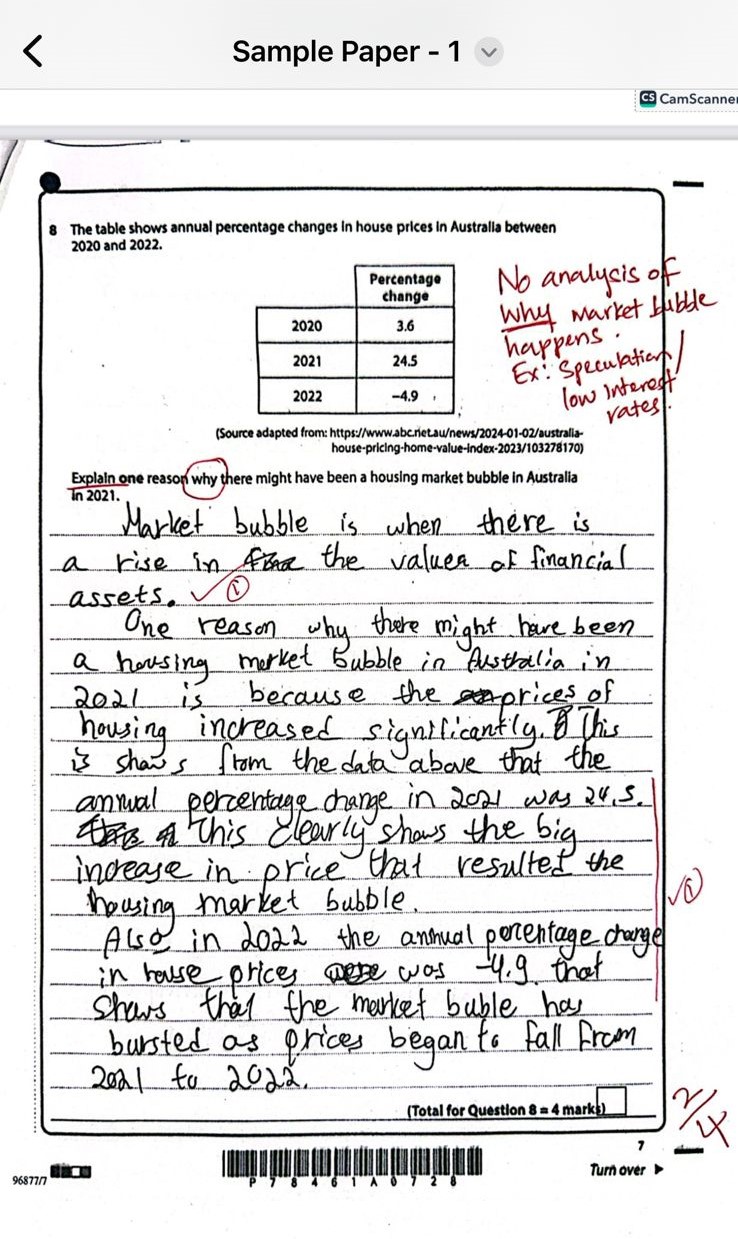 Sample Paper - 1
CS CamScanner
8 The table shows annual percentage changes in house prices in Australia between
2020 and 2022.
Percentage
change
2020 3.6
2021 24.5
2022 −4.9
No analysis of
why market bubble
happens.
Ex: Speculation/
low interest
rates.
(Source adapted from: https://www.abc.net.au/news/2024-01-02/australia-
house-pricing-home-value-index-2023/103278170)
Explain one reason why there might have been a housing market bubble in Australia
in 2021.
Market bubble is when there is
a rise in the values of financial
assets. ✓ ①
One reason why there might have been
a housing market bubble in Australia in
2021 is because the prices of
housing increased significantly. This
is shows from the data above that the
annual percentage change in 2021 was 24.5.
This clearly shows the big
increase in price that resulted the
housing market bubble.
✓ ①
Also in 2022 the annual percentage change
in house prices was -4.9 that
shows that the market buble has
bursted as prices began to fall from
2021 to 2022.
(Total for Question 8 = 4 marks)
2/4
7
Turn over ▶
96877/7
P 7 8 4 6 1 A 0 7 2 8